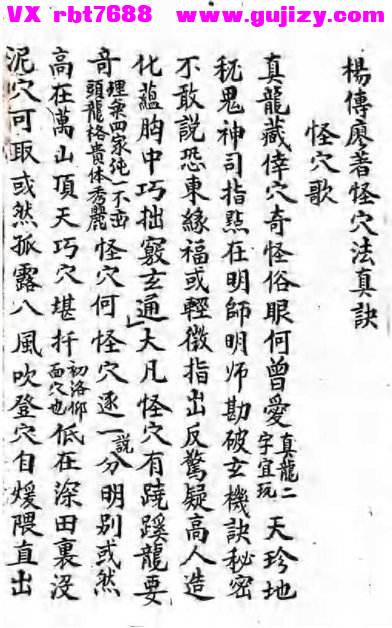 VX rbt7688 www.gujizy.com
楊傳廖著怪穴法真訣
怪穴歌
真龍藏倖穴奇怪俗眼何曾愛真龍二字宜玩天珍地
秘鬼神司指點在明師明师勘破玄機訣秘密
不敢說恐東緣福或輕微指出反驚疑高人造
化蘊胸中巧拙竅玄通大凡怪穴有蹺蹊龍要
奇理氣四家純一不雜頭龍格貴体秀麗怪穴何怪穴逐一說分明別或然
高在萬山頂天巧穴堪扦初洛仰面穴也低在深田裏没
泥穴可取或然孤露八風吹登穴自煖隈直出